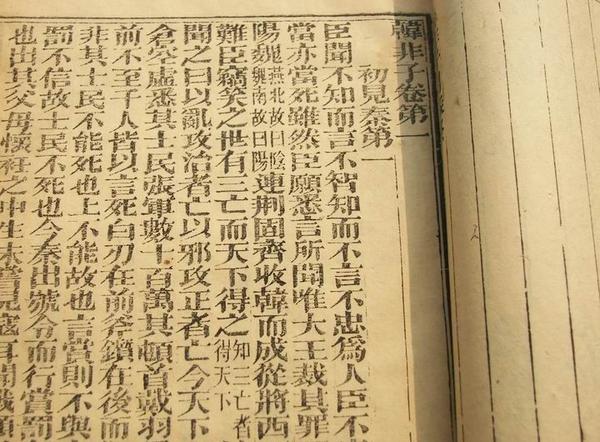 韓非子卷第一
初見秦第一
臣聞不知而言不智知而不言不忠爲人臣不
當亦當死雖然臣願悉言所聞唯大王裁其罪
陽魏燕北故曰陰魏南故曰陽連荊固齊收韓而成從將西
難臣竊笑之世有三亡而天下得之知三亡者得天下
聞之曰以亂攻治者亡以邪攻正者亡今天下
倉空虛悉其士民張軍數十百萬其頓首戴羽
前不至千人皆以言死白刃在前斧鑕在後而
非其士民不能死也上不能故也言賞則不與
罰不信故士民不死也今秦出號令而行賞罰
也出其父母懷衽之中生未嘗見寇耳聞戰頓